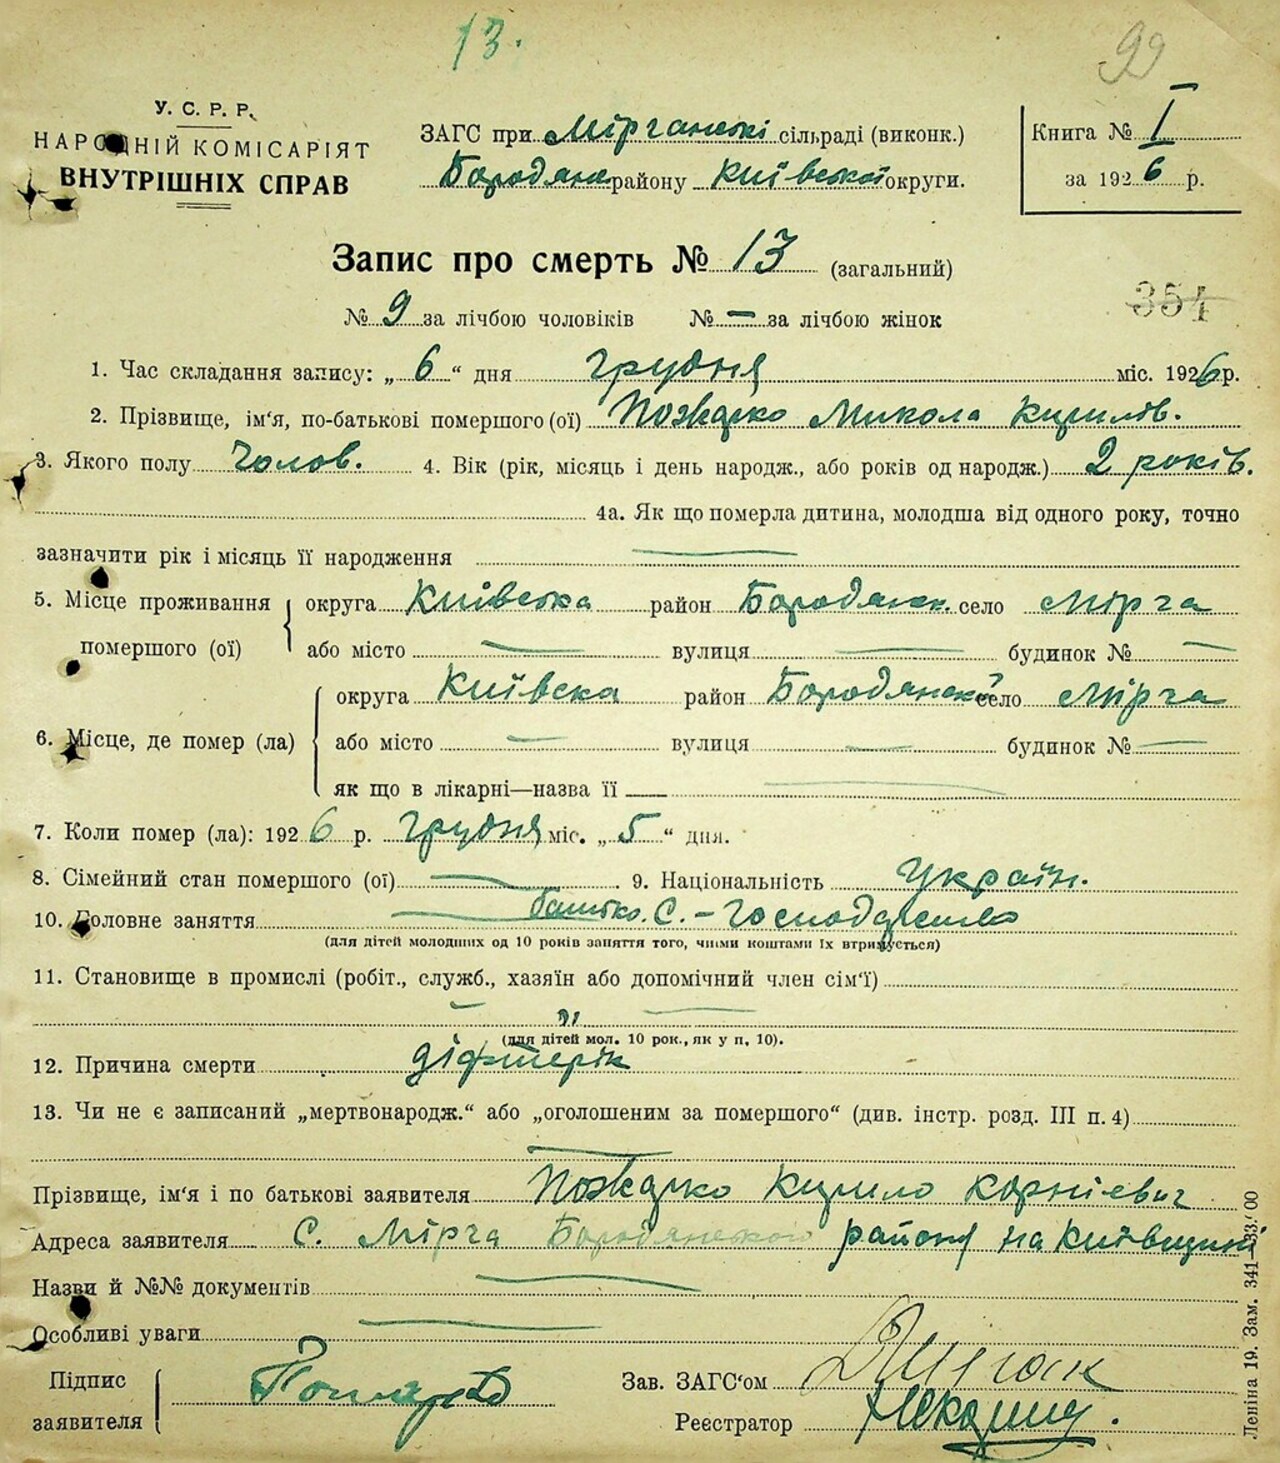 13.
99
У. С. Р. Р.
НАРОДНІЙ КОМІСАРІЯТ
ВНУТРІШНІХ СПРАВ
ЗАГС при Мірчанські сільраді (виконк.)
Бородянс району Київської округи.
Книга № I
за 1926 р.
Запис про смерть № 13 (загальний)
354
№ 9 за лічбою чоловіків № — за лічбою жінок
1. Час складання запису: „ 6 “ дня грудня міс. 1926 р.
2. Прізвище, ім'я, по-батькові помершого (ої) Пожарко Микола Кирилов.
3. Якого полу Чолов. 4. Вік (рік, місяць і день народж., або років од народж.) 2 років.
4а. Як що померла дитина, молодша від одного року, точно
зазначити рік і місяць її народження —
5. Місце проживання помершого (ої) округа Київська район Бородянск. село Мірча
або місто — вулиця — будинок № —
6. Місце, де помер (ла) округа Київска район Бородянскі село Мірча
або місто — вулиця — будинок № —
як що в лікарні—назва її —
7. Коли помер (ла): 1926 р. грудня міс. „ 5 “ дня.
8. Сімейний стан помершого (ої) — 9. Національність Україн.
10. Головне заняття — батько. С. - Господарство
(для дітей молодших од 10 років заняття того, чиїми коштами їх втримується)
11. Становище в промислі (робіт., служб., хазяїн або допомічний член сім'ї)
— „ —
(для дітей мол. 10 рок., як у п, 10).
12. Причина смерти діфтерік
13. Чи не є записаний „мертвонародж.“ або „оголошеним за помершого“ (див. інстр. розд. III п. 4)
—
Прізвище, ім'я і по батькові заявителя Пожарко Кирило Корнієвич
Адреса заявителя С. Мірча Бородянського району на Київщині
Назви й №№ документів —
Особливі уваги —
Підпис заявителя Пожарко
Зав. ЗАГС'ом
Реєстратор
Леніна 19. Зам. 341—33. 00